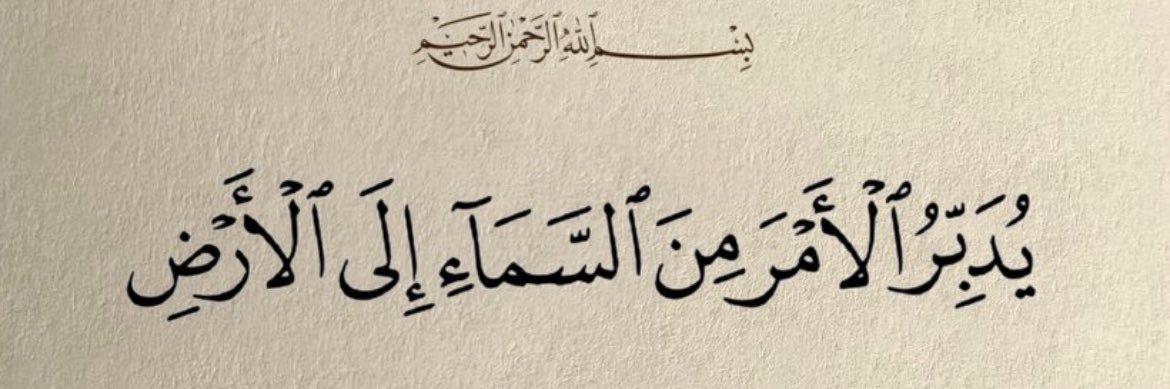 بِسْمِ ٱللَّهِ ٱلرَّحْمَٰنِ ٱلرَّحِيمِ
يُدَبِّرُ ٱلْأَمْرَ مِنَ ٱلسَّمَآءِ إِلَى ٱلْأَرْضِ